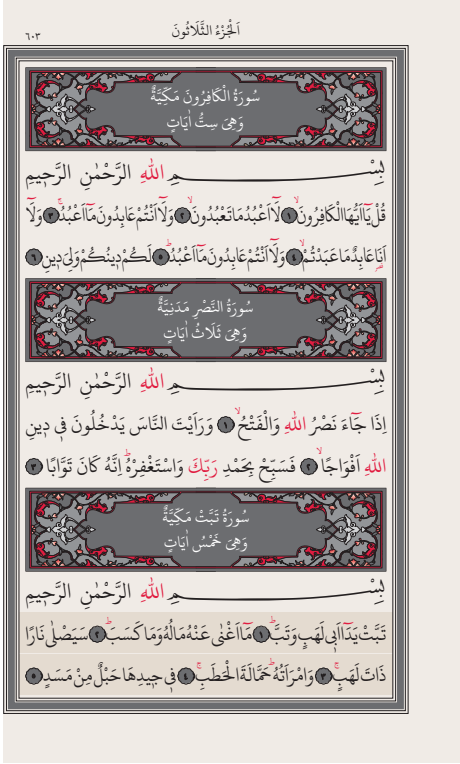 ٦٠٣
اَلْجُزْءُ الثَّلَاثُونَ
سُورَةُ الْكَافِرُونَ مَكِّيَّةٌ
وَهِيَ سِتُّ اٰيَاتٍ
بِسْمِ اللهِ الرَّحْمٰنِ الرَّحِيمِ
قُلْ يَٓا اَيُّهَا الْكَافِرُونَۙ ﴿١﴾ لَٓا اَعْبُدُ مَا تَعْبُدُونَۙ ﴿٢﴾ وَلَٓا اَنْتُمْ عَابِدُونَ مَٓا اَعْبُدُۚ ﴿٣﴾ وَلَٓا
اَنَا۬ عَابِدٌ مَا عَبَدْتُمْۙ ﴿٤﴾ وَلَٓا اَنْتُمْ عَابِدُونَ مَٓا اَعْبُدُۜ ﴿٥﴾ لَكُمْ دِينُكُمْ وَلِيَ دِينِ ﴿٦﴾
سُورَةُ النَّصْرِ مَدَنِيَّةٌ
وَهِيَ ثَلَاثُ اٰيَاتٍ
بِسْمِ اللهِ الرَّحْمٰنِ الرَّحِيمِ
اِذَا جَٓاءَ نَصْرُ اللهِ وَالْفَتْحُۙ ﴿١﴾ وَرَاَيْتَ النَّاسَ يَدْخُلُونَ فِي دِينِ
اللهِ اَفْوَاجًاۙ ﴿٢﴾ فَسَبِّحْ بِحَمْدِ رَبِّكَ وَاسْتَغْفِرْهُۜ اِنَّهُ كَانَ تَوَّابًا ﴿٣﴾
سُورَةُ تَبَّتْ مَكِّيَّةٌ
وَهِيَ خَمْسُ اٰيَاتٍ
بِسْمِ اللهِ الرَّحْمٰنِ الرَّحِيمِ
تَبَّتْ يَدَٓا اَبِي لَهَبٍ وَتَبَّۜ ﴿١﴾ مَٓا اَغْنٰى عَنْهُ مَالُهُ وَمَا كَسَبَۜ ﴿٢﴾ سَيَصْلٰى نَارًا
ذَاتَ لَهَبٍۚ ﴿٣﴾ وَامْرَاَتُهُۜ حَمَّالَةَ الْحَطَبِۚ ﴿٤﴾ فِي جِيدِهَا حَبْلٌ مِنْ مَسَدٍ ﴿٥﴾